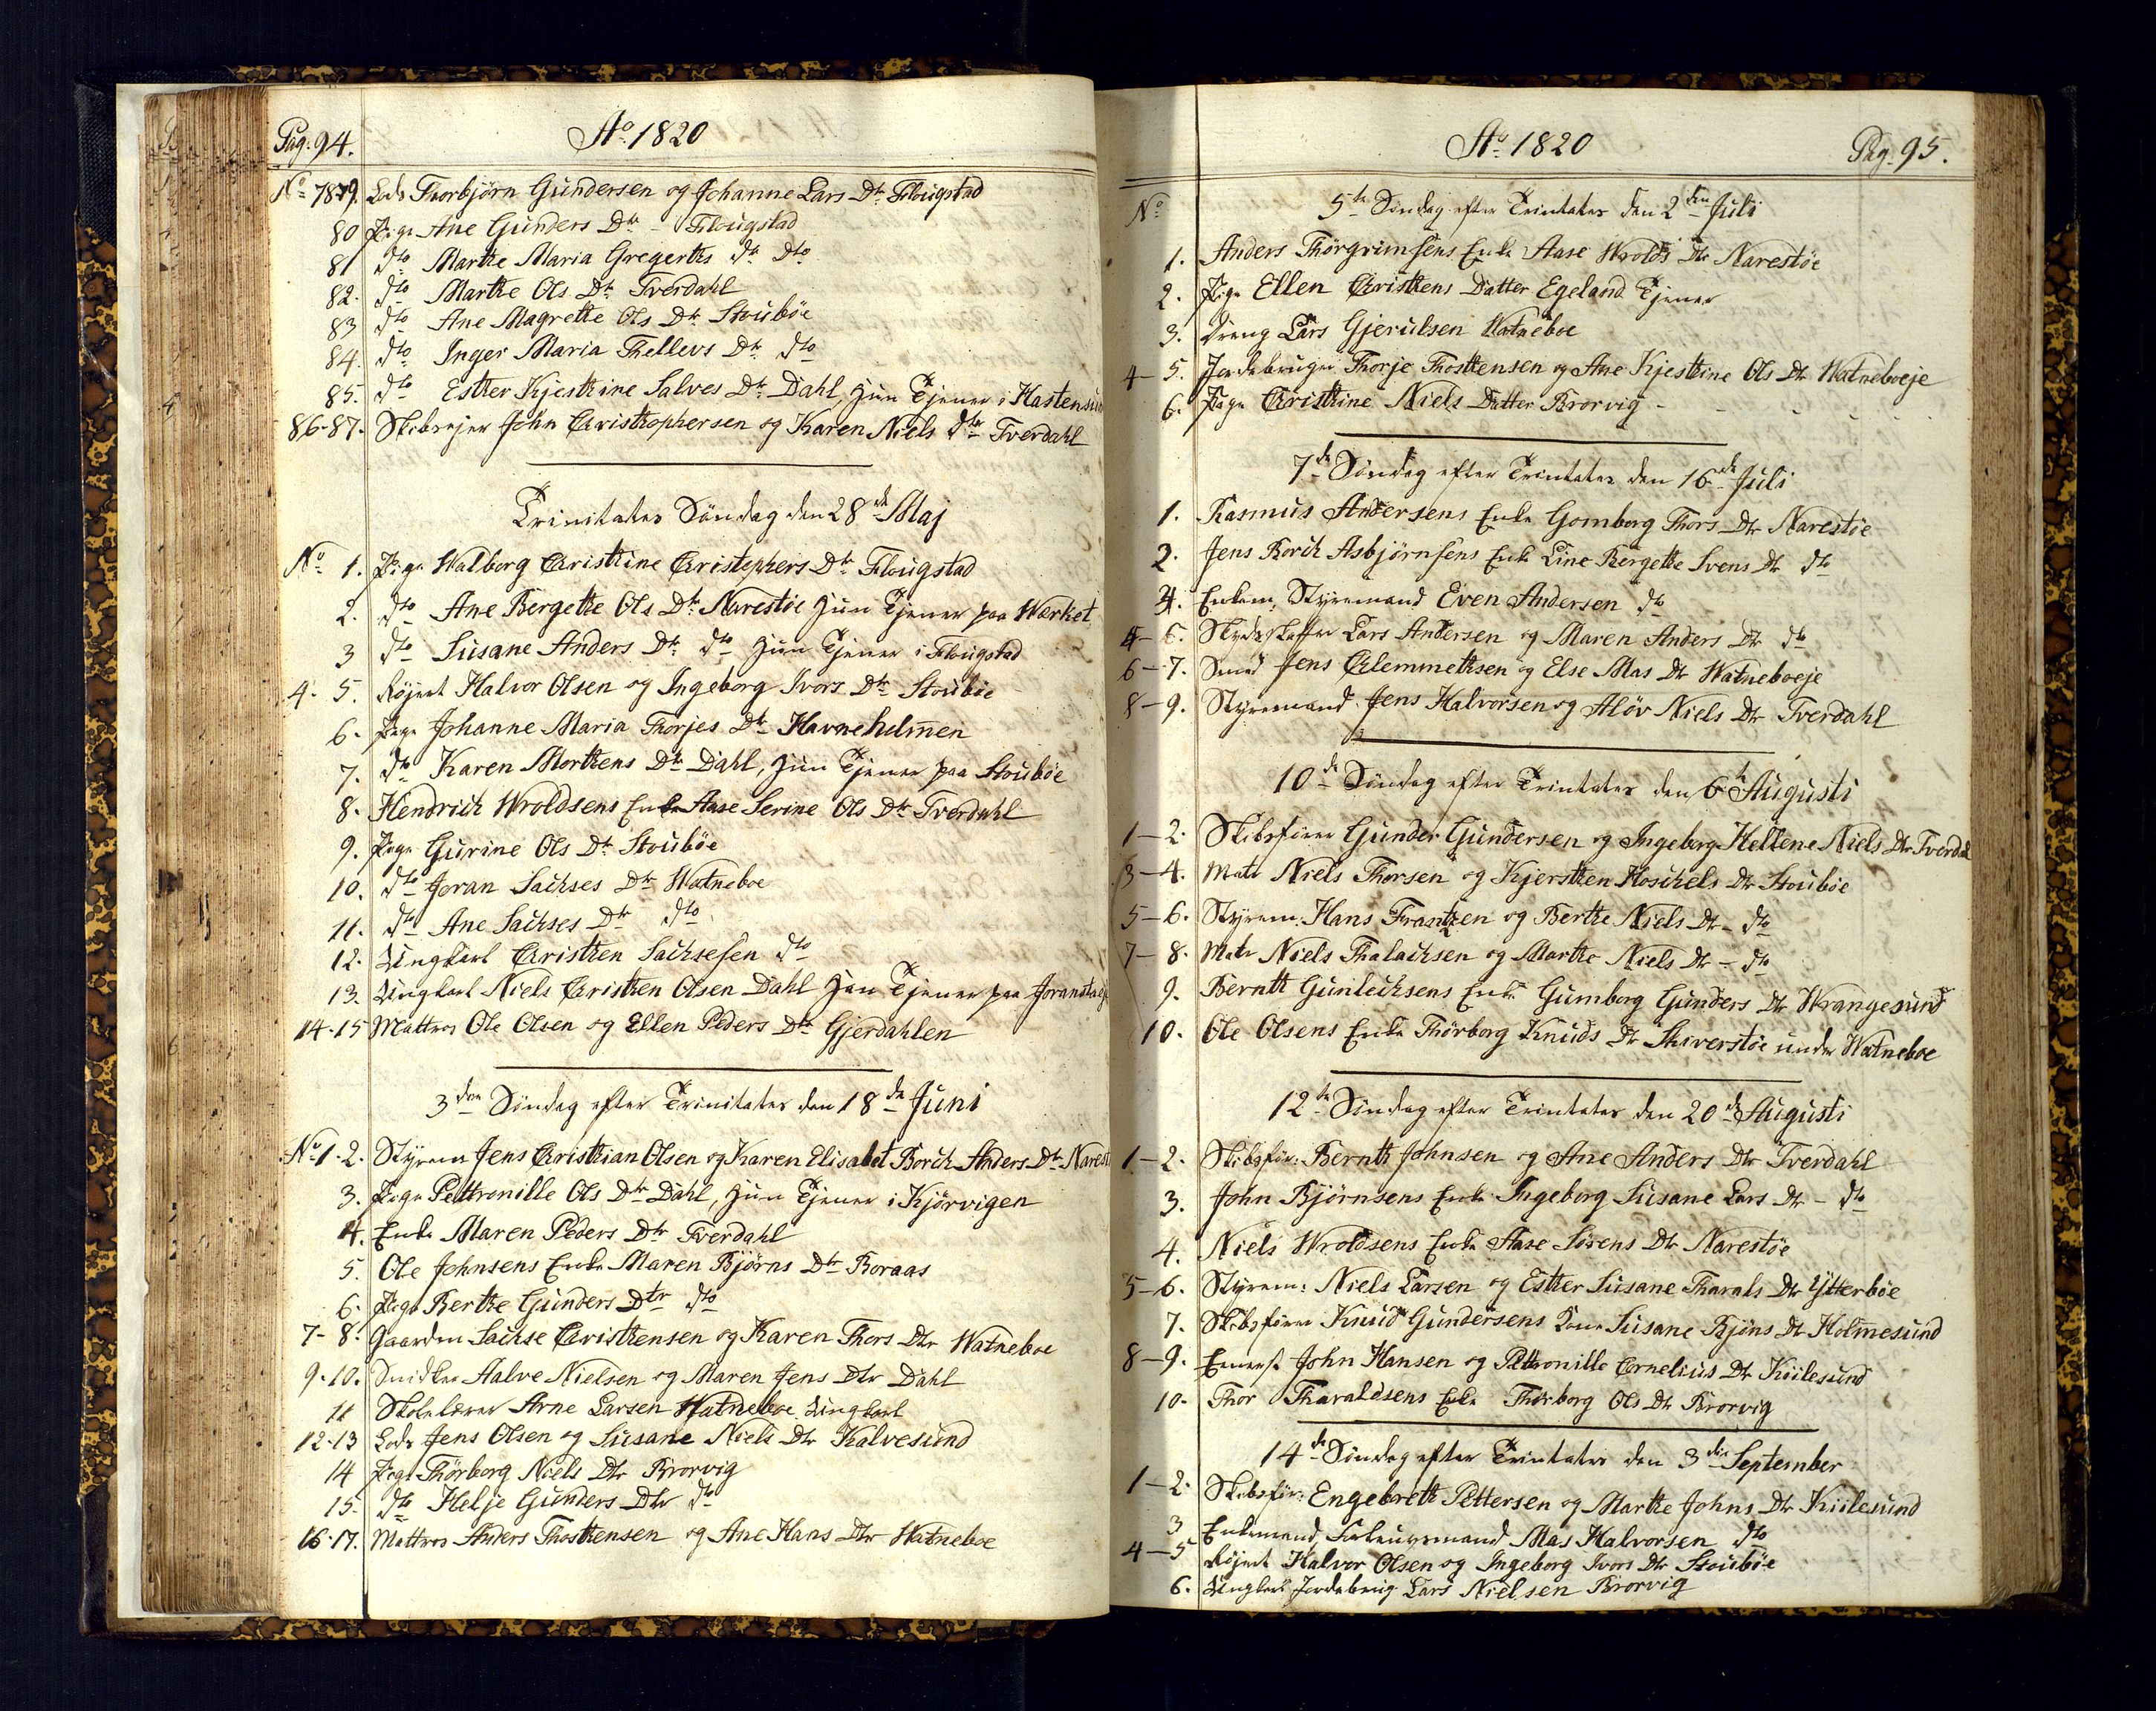 Pag. 94.
Ao 1820
No 7879. Lods Thorbjörn Gundersen og Johanne Lars Dtr Flougstad
80 Pige Ane Gunders Dtr – Flougstad
81 dto Marthe Maria Gregerths dr dto
82. dto Marthe Ols Dtr Tverdahl
83 dto Ane Magrethe Ols Dtr Stoubøe
84. dto Inger Maria Thellevs Dtr dto
85. dto Esther Kjesthine Salves Dtr Dahl, hun Tjener i Hastensund
86-87. Skibsejer John Christhophersen og Karen Niels dtr Tverdahl
Trinitatis Søndag den 28de Maj
No 1. Pige Walborg Christhine Christophers Dtr Flougstad
2. dto Ane Bergethe Ols Dtr Narestøe hun Tjener paa Werket
3 dto Susane Anders Dtr dto hun Tjener i Flougstad
4. 5. Röjert Halvor Olsen og Ingeborg Ivors Dtr Stoubøe
6. Pige Johanne Maria Thorjes Dtr Havneholmen
7. dto Karen Morthens Dtr Dahl, hun Tjener paa Stoubøe
8. Hendrich Wroldsens Enke Aase Serine Ols Dtr Tverdahl
9. Pige Gurine Ols Dtr Stoubøe
10. dto Joran Sachses Dtr Watneboe
11. dto Ane Sachses Dtr dto
12. Ungkarl Christhen Sachsesen dto
13. Ungkarl Niels Christhen Olsen Dahl han Tjener paa
14-15 Mattros Ole Olsen og Ellen Peders Dtr Gjerdahlen
3die Søndag efter Trinitatis den 18de Juni
No 1-2. Styrem Jens Christhian Olsen og Karen Elisabet Borch Anders Dtr Narest
3. Pige Pettronille Ols Dtr Dahl, hun Tjener i Kjørvigen
4. Enke Maren Peders Dtr Tverdahl
5. Ole Johnsens Enke Maren Bjørns Dtr Boraas
6. Pige Berthe Gunders Dtr dto
7-8. Gaardm Sachse Christhensen og Karen Thors Dtr Watneboe
9-10. Snidker Aalve Nielsen og Maren Jens Dtr Dahl
11 Skolelærer Arne Larsen Watneboe Ungkarl
12-13 Lods Jens Olsen og Susane Niels Dtr Kalvesund
14 Pige Thörborg Niels Dtr Brorvig
15. dto Helje Gunders Dtr dto
16-17. Mattros Anders Thosthensen og Ane Hans Dtr Watneboe
Ao 1820
Pag. 95.
No
5te Søndag efter Trinitatis den 2den Juli
1. Anders Thorgrimsens Enke Aase Wrolds Dtr Narestøe
2. Pige Ellen Christhens Datter Egeland Tjener
3. Dreng Lars Gjerulsen Watneboe
4-5. Jordebruger Thorje Thosthensen og Ane Kjesthine Ols Dtr Watneboeje
6. Pige Christhine Niels Datter Brorvig
7de Søndag efter Trinitatis den 16de Juli
1. Rasmus Andersens Enke Gomborg Thors Dtr Narestøe
2. Jens Borch Asbjørnsens Enke Line Bergethe Svens Dtr dto
3. Enkem: Styremand Even Andersen dto
4-5. Lars Andersen og Maren Anders Dtr dto
6-7. Smed Jens Clemmethsen og Else Mas Dtr Watneboeje
8-9. Styremand Jens Halvorsen og Aløv Niels Dtr Tverdahl
10de Søndag efter Trinitatis den 6te Augusti
1-2. Skibsfører Gunder Gundersen og Ingeborg Hellene Niels Dtr Tverdal
3-4. Matr Niels Thorsen og Kjersthen Hoschels Dtr Stoubøe
5-6. Styrem: Hans Frantzen og Berthe Niels Dtr – dto
7-8. Matr Niels Thalachsen og Marthe Niels Dtr – dto
9. Bernth Gunlechsens Enke Gumborg Gunders Dtr Wrangesund
10. Ole Olsens Enke Thörborg Knuds Dtr Skiverstøe under Watneboe
12te Søndag efter Trinitatis den 20de Augusti
1-2. Skibsfør: Bernth Johnsen og Ane Anders Dtr Tverdahl
3. John Bjørnsens Enke Ingeborg Susane Lars Dtr – dto
4. Niels Wroldsens Enke Aase Sørens Dtr Narestøe
5-6. Styrem: Niels Larsen og Esther Susane Tharals Dtr Ytterbøe
7. Skibsfører Knud Gundersens Kone Susane Bjøns Dtr Holmesund
8-9. John Hansen og Pettronille Cornelius Dtr Kiilesund
10. Thor Tharaldsens Enke Thörborg Ols Dtr Brorvig
14de Søndag efter Trinitatis den 3die September
1-2. Skibsfør: Engebreth Pettersen og Marthe Johns Dtr Kiilesund
3 Enkemand Mas Halvorsen dto
4-5 Röjert Halvor Olsen og Ingeborg Ivors Dtr Stoubøe
6. Ungkarl Jordebrug Lars Nielsen Brorvig